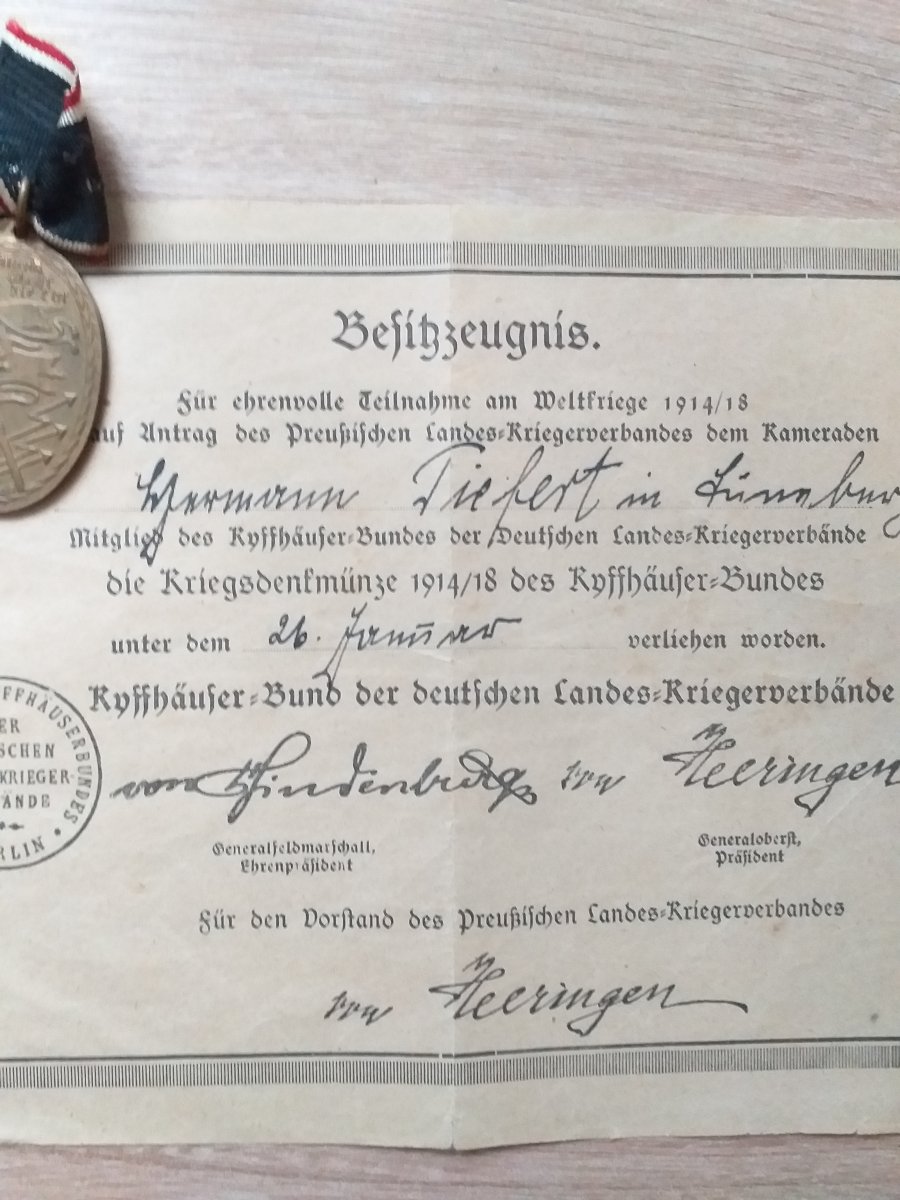 Besitzzeugnis.
Für ehrenvolle Teilnahme am Weltkriege 1914/18
auf Antrag des Preußischen Landes-Kriegerverbandes dem Kameraden
Hermann in Lüneburg
Mitglied des Kyffhäuser-Bundes der Deutschen Landes-Kriegerverbände
die Kriegsdenkmünze 1914/18 des Kyffhäuser-Bundes
unter dem 26. Januar verliehen worden.
Kyffhäuser-Bund der deutschen Landes-Kriegerverbände
FFHÄUSERBUNDES
ER
SCHEN
KRIEGER-
ÄNDE
RLIN
von Hindenburg von Heeringen
Generalfeldmarschall, Generaloberst,
Ehrenpräsident Präsident
Für den Vorstand des Preußischen Landes-Kriegerverbandes
von Heeringen